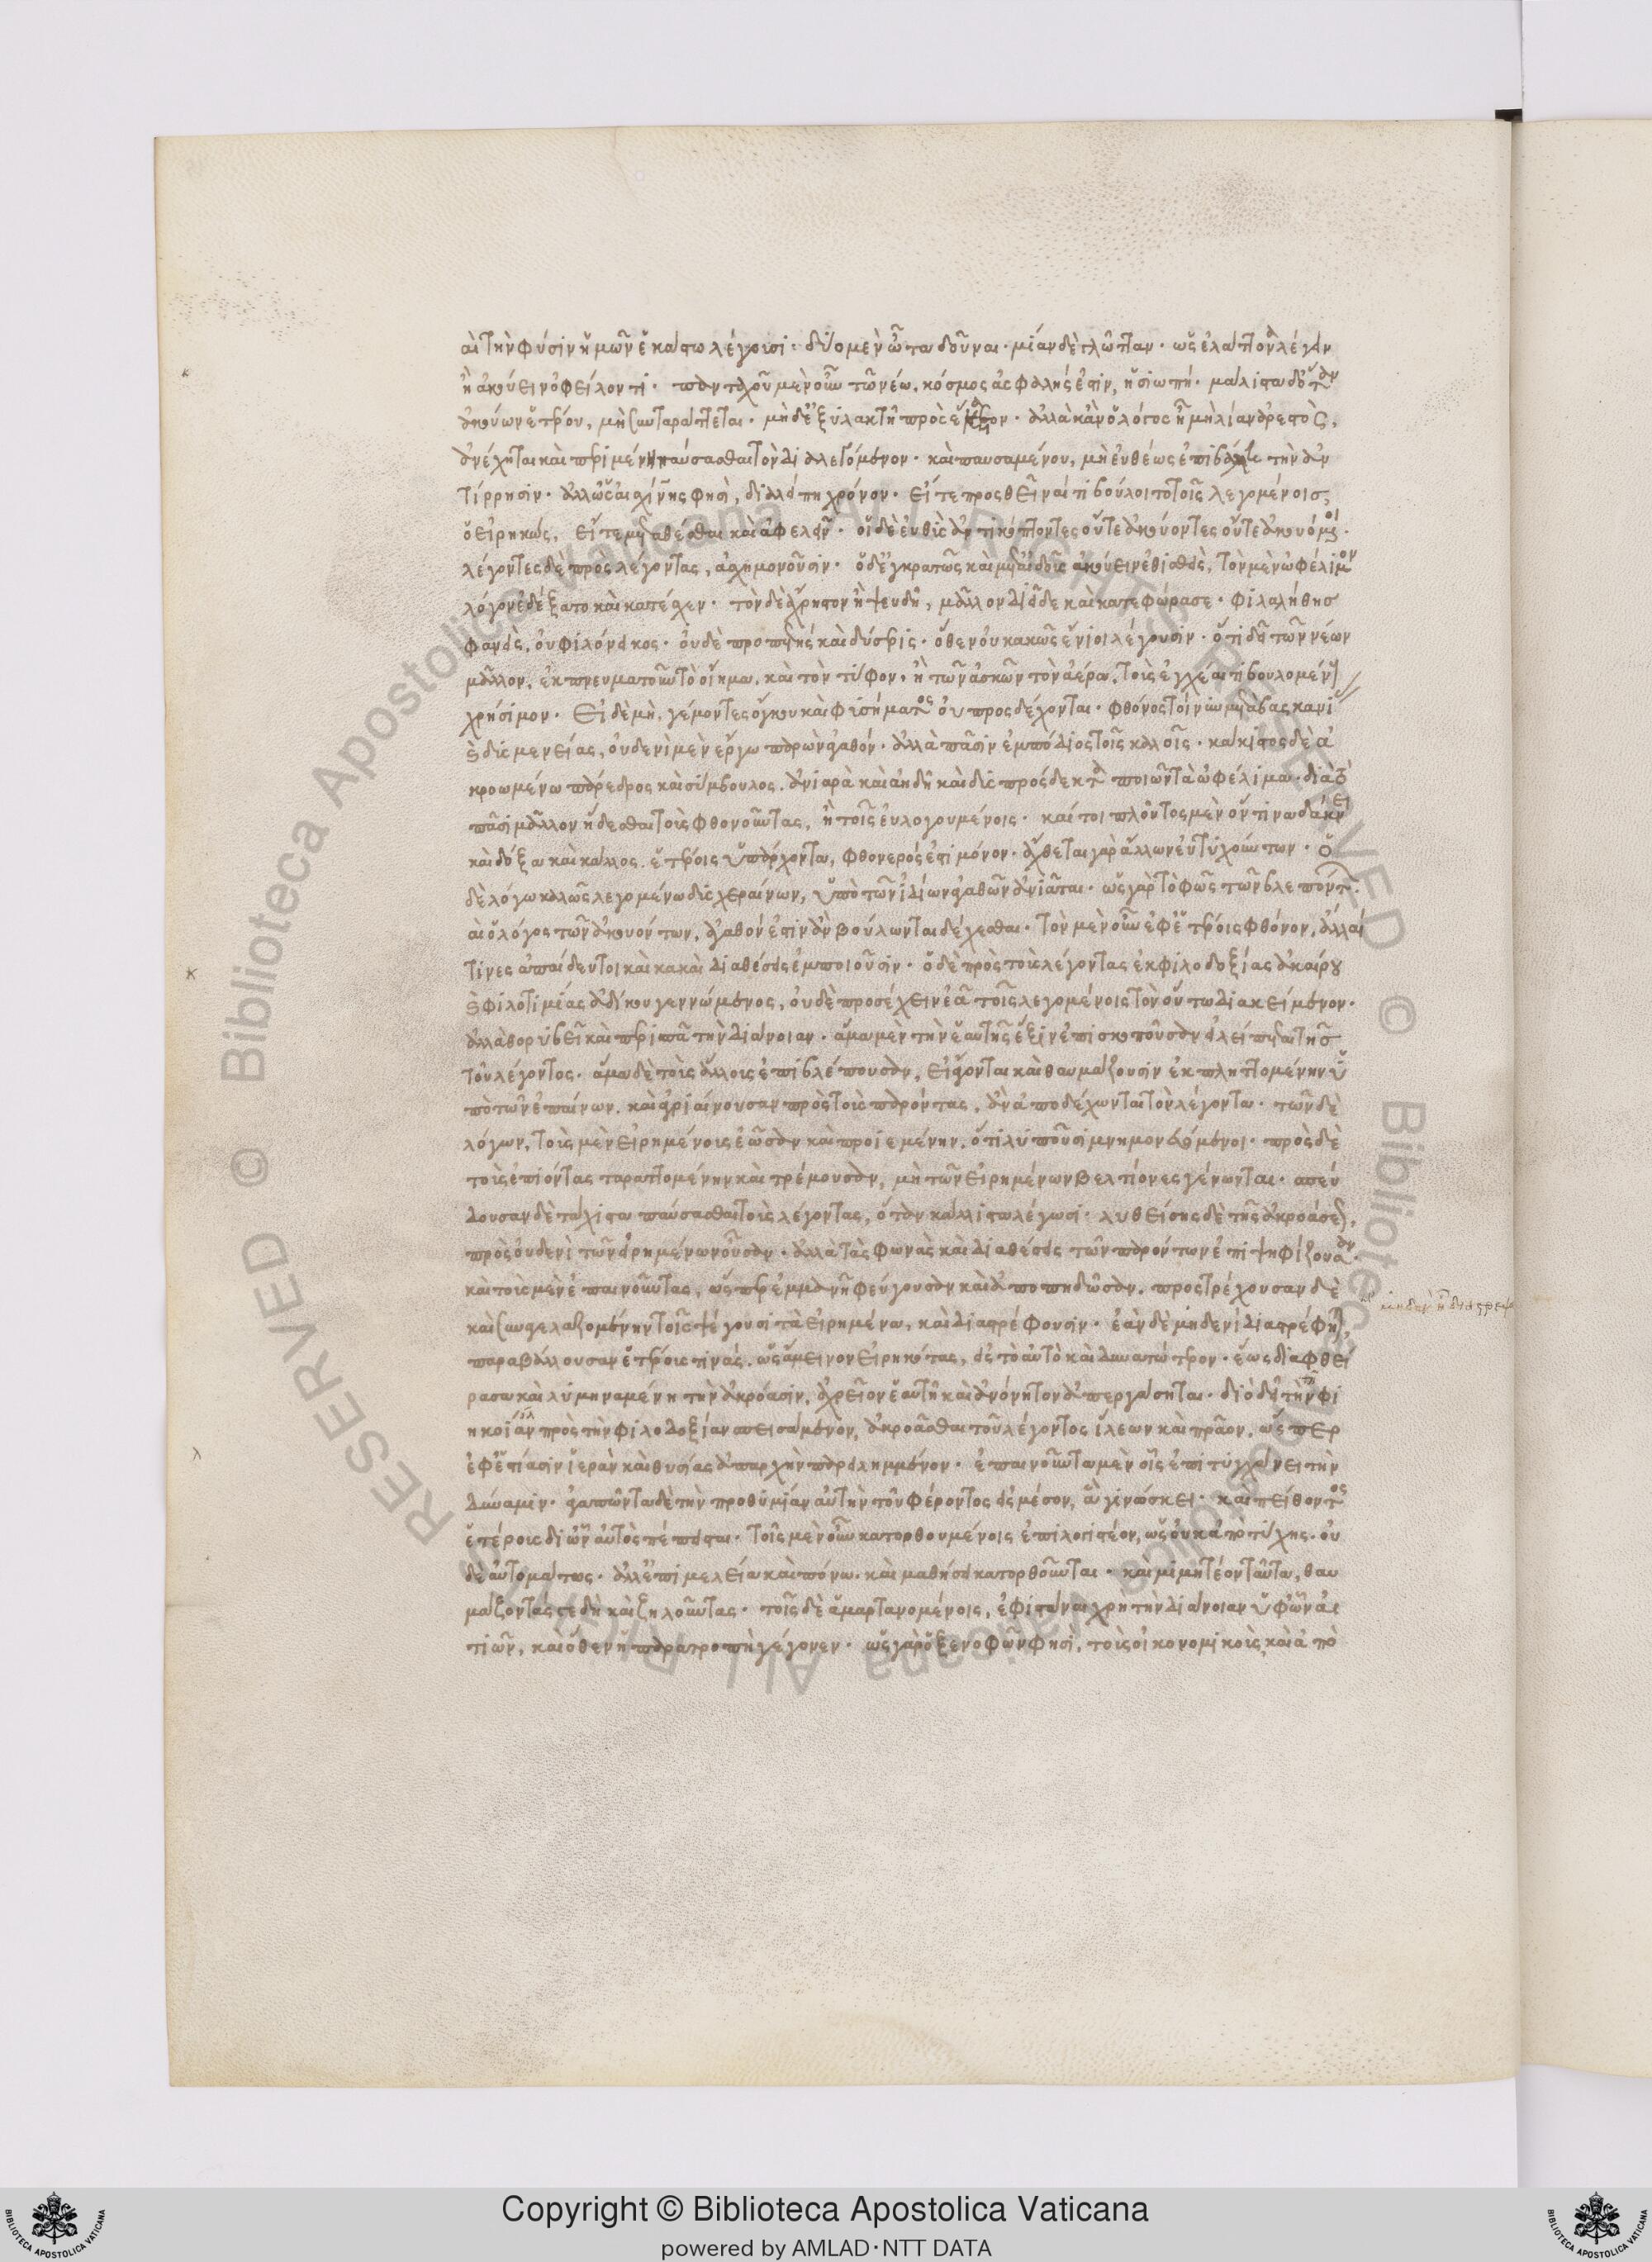 αι τὴν φύσιν ἡμῶν ἑκάστω λέγουσι· δύο μὲν ὦτα δοῦναι· μίαν δὲ γλῶτταν· ὡς ἐλάττονα λέγειν
ἢ ἀκούειν ὀφείλοντι· πανταχοῦ μὲν οὖν τῶ νέω, κόσμος ἀσφαλής ἐστιν, ἡ σιωπή· μάλιστα δ' ὅταν
ἀκούων ἑτέρου, μὴ συνταράττεται· μὴ δ' ἐξυλακτῆ πρὸς ἕκαστον· ἀλλὰ κἂν ὁ λόγος ἦ μὴ λίαν ἀρεστὸς,
ἀνέχηται καὶ περιμένη παύσασθαι τὸν διαλεγόμενον· καὶ παυσαμένου, μὴ εὐθέως ἐπιβάλλη τὴν ἀν
τίρρησιν· ἀλλ' ὡς αἰσχίνης φησὶ, διαλείπη χρόνον· εἴτε προσθεῖναί τι βούλοιτο τοῖς λεγομένοις,
ὁ εἰρηκὼς, εἴτε μεταθέσθαι καὶ ἀφελεῖν· οἱ δὲ εὐθὺς ἀντικόπτοντες οὔτε ἀκούοντες οὔτε ἀκουόμενοι·
λέγοντες δὲ πρὸς λέγοντας, ἀσχημονοῦσιν· ὁ δ' ἐγκρατῶς καὶ μετ' αἰδοῦς ἀκούειν ἐθισθεὶς, τὸν μὲν ὠφέλιμον
λόγον ἐδέξατο καὶ κατέσχεν· τὸν δὲ ἄχρηστον ἢ ψευδῆ, μᾶλλον διεῖδε καὶ κατεφώρασε· φιλαλήθης
φανεὶς, οὐ φιλόνεικος· οὐδὲ προπετὴς καὶ δύσερις· ὅθεν οὐ κακῶς ἔνιοι λέγουσιν· ὅτι δεῖ τῶν νέων
μᾶλλον, ἐκπνευματοῦν τὸ οἴημα, καὶ τὸν τῦφον, ἢ τῶν ἀσκῶν τὸν ἀέρα, τοὺς ἐγχέαι τι βουλομένους
χρήσιμον· Εἰ δὲ μὴ, γέμοντες ὄγκου καὶ φυσήματος οὐ προσδέχονται· φθόνος τοίνυν μετὰ βασκανί
ας δυσμενείας, οὐδενὶ μὲν ἔργω παρὼν ἀγαθόν· ἀλλὰ πᾶσιν ἐμπόδιος τοῖς καλοῖς· κάκιστος δὲ ἀ
κροωμένω πάρεδρος καὶ σύμβουλος, ἀνιαρὰ καὶ ἀηδῆ καὶ δυσπρόσδεκτα ποιῶν τὰ ὠφέλιμα· διὰ τὸ
πᾶσι μᾶλλον ἥδεσθαι τοὺς φθονοῦντας, ἢ τοῖς εὐλογουμένοις· καίτοι πλοῦτος μὲν οὕτινα δάκνει
καὶ δόξα καὶ κάλλος, ἑτέροις ὑπάρχοντα, φθονερός ἐστι μόνον· ἄχθεται γὰρ ἄλλων εὐτυχούντων· ὁ
δὲ λόγω καλῶς λεγομένω δυσχεραίνων, ὑπὸ τῶν ἰδίων ἀγαθῶν ἀνιᾶται· ὡς γὰρ τὸ φῶς τῶν βλεπόντων·
αι ὁ λόγος τῶν ἀκουόντων, ἀγαθόν ἐστιν ἂν βούλωνται δέχεσθαι· τὸν μὲν οὖν ἐφ' ἑτέροις φθόνον, ἄλλαι
τινὲς ἀπαίδευτοι καὶ κακαὶ διαθέσεις ἐμποιοῦσιν· ὁ δὲ πρὸς τοὺς λέγοντας ἐκ φιλοδοξίας ἀκαίρου
ς φιλοτιμίας ἀδίκου γεννώμενος, οὐδὲ προσέχειν ἐᾶ τοῖς λεγομένοις τὸν οὕτω διακείμενον·
ἀλλὰ θορυβεῖ καὶ περισπᾶ τὴν διάνοιαν· ἅμα μὲν τὴν ἑαυτῆς ἕξιν ἐπισκοποῦσαν εἰ λείπεται τῆς
τοῦ λέγοντος· ἅμα δὲ τοὺς ἄλλους ἐπιβλέπουσαν, εἰ ἄγονται καὶ θαυμάζουσιν ἐκπληττομένην ὑ
πὸ τῶν ἐπαίνων, καὶ ἀγριαίνουσαν πρὸς τοὺς παρόντας, ἂν ἀποδέχωνται τὸν λέγοντα· τῶν δὲ
λόγων, τοὺς μὲν εἰρημένους ἐῶσαν καὶ προϊεμένην, ὅτι λυποῦσι μνημονευόμενοι· πρὸς δὲ
τοὺς ἐπιόντας ταραττομένην καὶ τρέμουσαν, μὴ τῶν εἰρημένων βελτίονες γένωνται· σπεύ
δουσαν δὲ τάχιστα παύσασθαι τοὺς λέγοντας, ὅταν κάλλιστα λέγωσι· λυθείσης δὲ τῆς ἀκροάσεως,
πρὸς οὐδενὶ τῶν εἰρημένων οὖσαν· ἀλλὰ τὰς φωνὰς καὶ διαθέσεις τῶν παρόντων ἐπιψηφίζουσαν·
καὶ τοὺς μὲν ἐπαινοῦντας, ὥσπερ ἐμμανῆ φεύγουσαν καὶ ἀποπηδῶσαν, προστρέχουσαν δὲ
καὶ συναγελαζομένην τοῖς ψέγουσι τὰ εἰρημένα, καὶ διαστρέφουσιν· ἐὰν δὲ μηδενὶ διαστρέφη,
παραβάλλουσαν ἑτέρους τινὰς, ὡς ἄμεινον εἰρηκότας, εἰς τὸ αὐτὸ καὶ δυνατώτερον· ἕως διαφθεί
ρασα καὶ λυμηναμένη τὴν ἀκρόασιν, ἀχρεῖον ἑαυτῆ καὶ ἀνόνητον ἀπεργάσηται· διὸ δεῖ τὴν φι
ηκοΐαν πρὸς τὴν φιλοδοξίαν σπεισάμενον, ἀκροᾶσθαι τοῦ λέγοντος ἵλεων καὶ πρᾶον, ὥσπερ
ἐφ' ἑστίασιν ἱερὰν καὶ θυσίας ἀπαρχὴν παρειλημμένον· ἐπαινοῦντα μὲν οἷς ἐπιτυγχάνει τὴν
δύναμιν· ἀγαπῶντα δὲ τὴν προθυμίαν αὐτὴν τοῦ φέροντος εἰς μέσον, ἃ γινώσκει· καὶ πείθοντος
ἑτέρους δι' ὧν αὐτὸς πέπεισται· τοῖς μὲν οὖν κατορθουμένοις ἐπιλογιστέον, ὡς οὐκ ἀπὸ τύχης, οὐ
δὲ αὐτομάτως· ἀλλ' ἐπιμελεία καὶ πόνω, καὶ μαθήσει κατορθοῦνται· καὶ μιμητέον ταῦτα, θαυ
μάζοντάς γε δὴ καὶ ζηλοῦντας· τοῖς δὲ ἁμαρτανομένοις, ἐφιστάναι χρὴ τὴν διάνοιαν ὑφ' ὧν αἰ
τιῶν, καὶ ὅθεν ἡ παρατροπὴ γέγονεν· ὡς γὰρ ὁ ξενοφῶν φησι, τοὺς οἰκονομικοὺς καὶ ἀπὸ
Copyright © Biblioteca Apostolica Vaticana
powered by AMLAD·NTT DATA